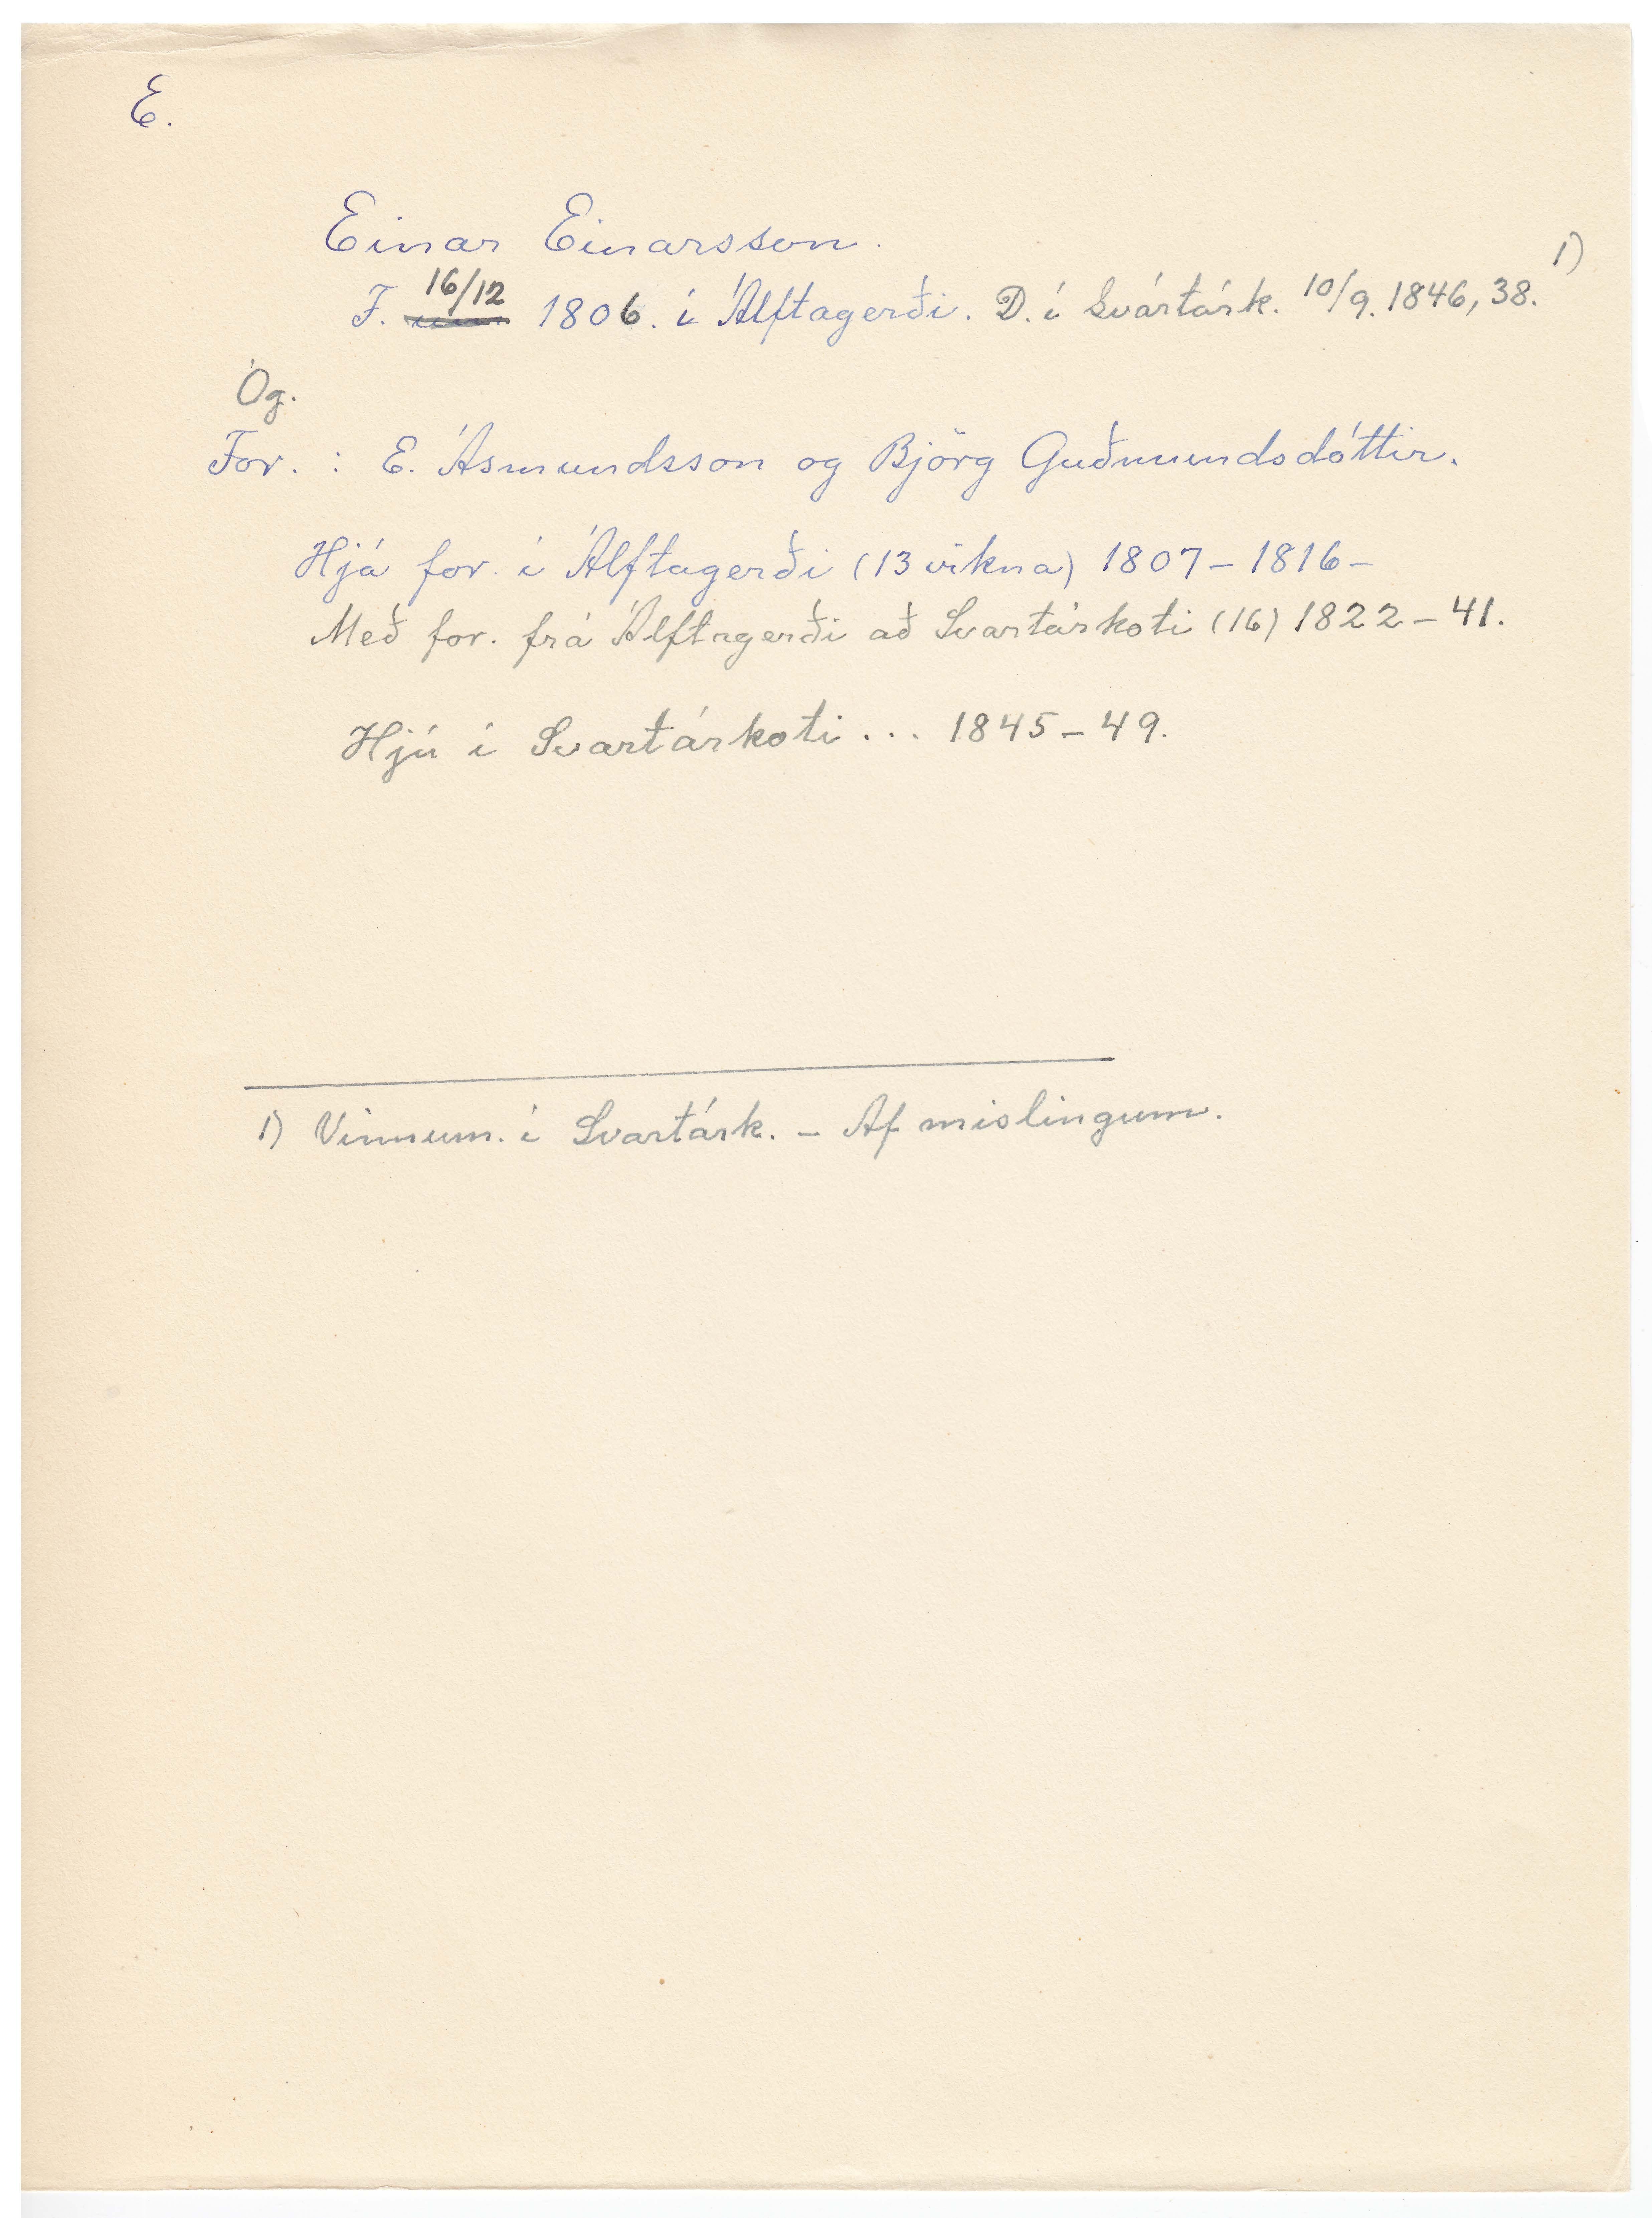 E.
Einar Einarsson.
F. 16/12 1806. í Álftagerði. D. í Svartárk. 10/9. 1846, 38. 1)
Óg.
For. : E. Ásmundsson og Björg Guðmundsdóttir.
Hjá for. í Álftagerði (13 vikna) 1807 – 1816 –
Með for. frá Álftagerði að Svartárkoti (16) 1822 – 41.
Hjú í Svartárkoti ... 1845 – 49.
1) Vinnum. í Svartárk. – Af mislingum.